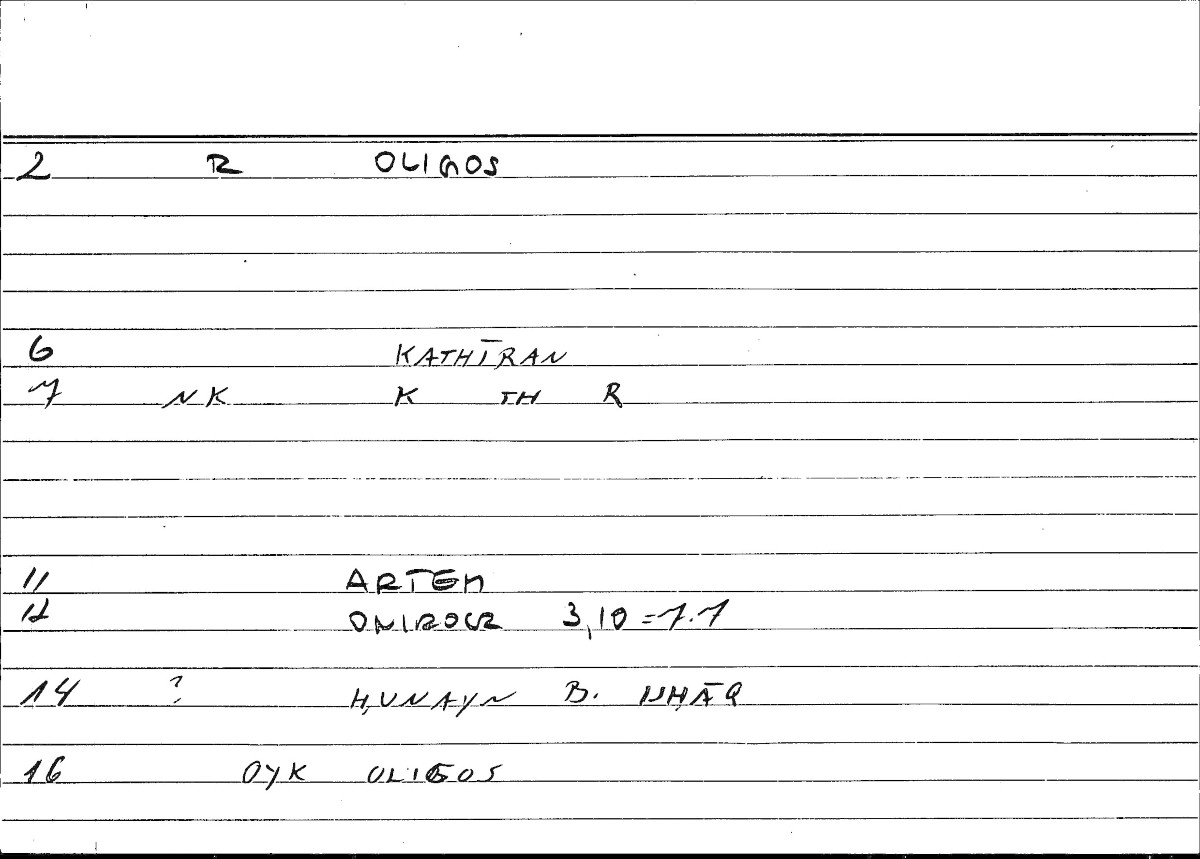 2 R OLIGOS
6 KATHĪRAN
7 NK K TH R
11 ARTEM
12 ONIROCR 3,10 = 7.7
14 ? ḤUNAYN B. ISḤĀQ
16 OYK OLIGOS